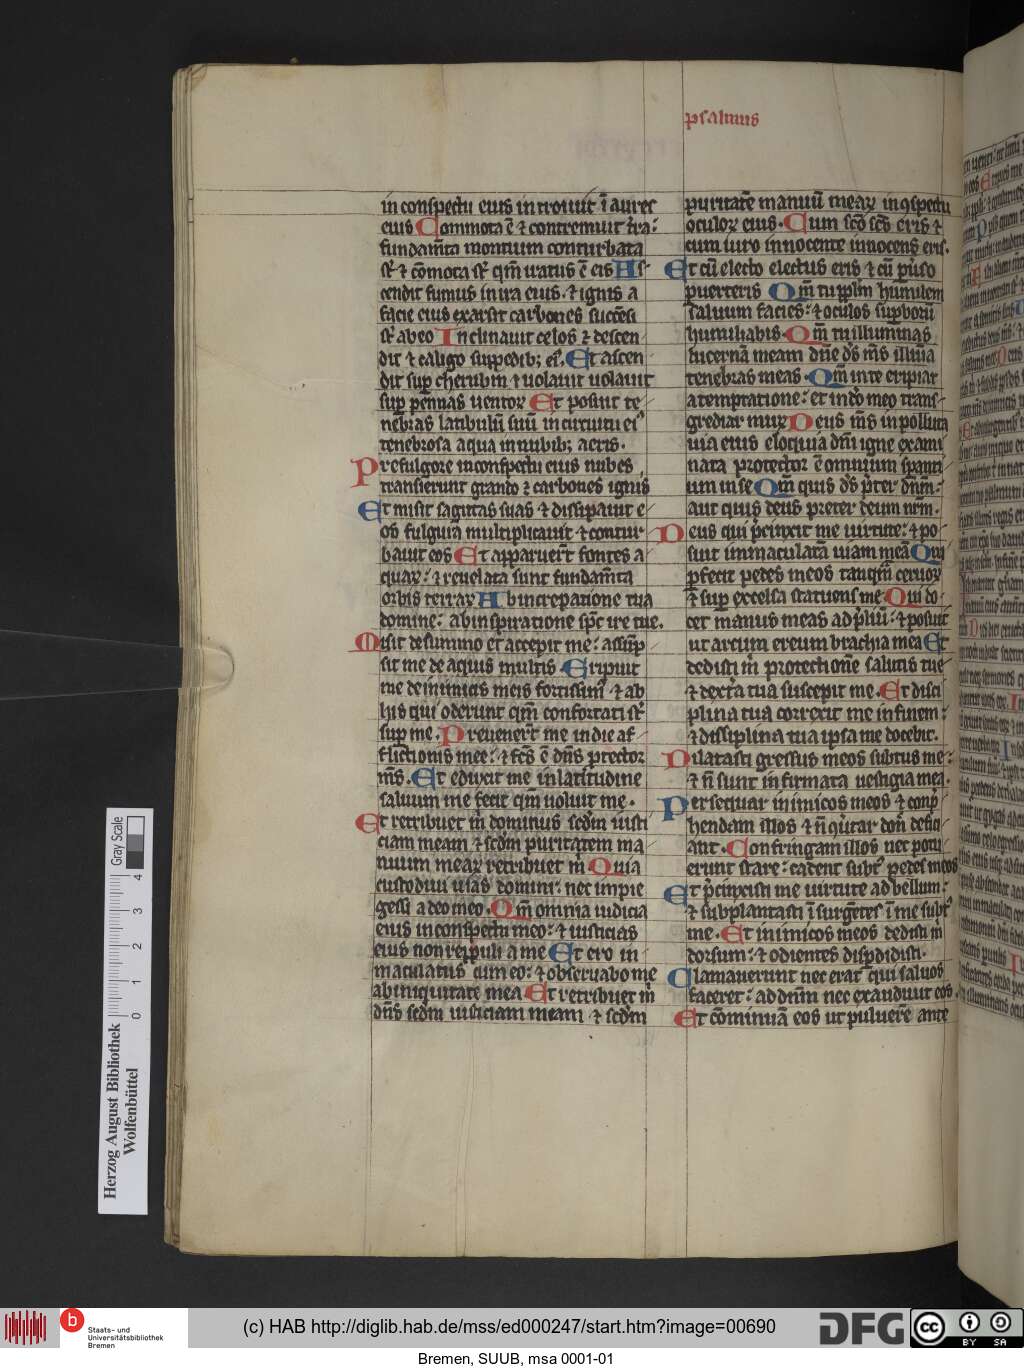 psalmus
in conspectu eius introiuit ī aures
eius Commota ē ⁊ contremuit t̄ra:
fundam̄ta montium conturbata
sr̄ ⁊ cōmota sr̄ qm̄ iratus ē eis As
cendit fumus in ira eius ⁊ ignis a
facie eius exarsit carbones succēsi
sr̄ ab eo Inclinauit celos ⁊ descen
dit ⁊ caligo sub pedib; ei᷒. Et ascen
dit sup cherubin ⁊ uolauit uolauit
sup pennas uentoꝝ Et posuit te
nebras latibulū suū in circuitu ei᷒
tenebrosa aqua in nubib; aeris.
Prefulgore inconspectu eius nubes
transierunt grando ⁊ carbones ignis
Et misit sagittas suas ⁊ dissipauit e
os fulgura multiplicauit ⁊ contur
bauit eos Et apparuert̄ fontes a
quaꝝ: ⁊ reuelata sunt fundam̄ta
orbis terraꝝ Ab increpatione tua
domine: ab inspiratione spc̄ ire tue.
Misit de summo et accepit me: assūp
sit me de aquis multis. Eripuit
me de inimicis meis fortissimis ⁊ ab
his qui oderunt qm̄ confortati sr̄
sup me. Preuenert̄ me in die af
flictionis mee: ⁊ fcs̄ ē dn̄s ptector
ms̄. Et eduxit me in latitudine
saluum me fecit qm̄ uoluit me.
Et retribuet m̄ dominus scdm̄ iusti
ciam meam ⁊ scdm̄ puritatem ma
nuum meaꝝ retribuet m̄ Quia
custodiui uias domini: nec impie
gessi a deo meo. Qm̄ omnia iudicia
eius in conspectu meo: ⁊ iusticias
eius non reppuli a me Et ero in
maculatus cum eo: ⁊ obseruabo me
ab iniquitate mea Et retribuet m̄
dn̄s scdm̄ iusticiam meam ⁊ scdm̄
puritatē manuū meaꝝ in ꝯspectu
oculoꝝ eius. Cum scō scs̄ eris ⁊
cum uiro innocente innocens eris.
Et cū electo electus eris ⁊ cū puerso
puerteris Qm̄ tu pplm̄ humilem
saluum facies: ⁊ oculos supborū
humiliabis. Qm̄ tu illuminas
lucernā meam dn̄e ds̄ ms̄ illuīa
tenebras meas. Qm̄ in te eripiar
a temptatione: et in do meo trans
grediar muꝝ Deus ms̄ inpolluta
uia eius eloquia dn̄i igne exami
nata protector ē omnium speranti
um in se Qm̄ quis ds̄ pter dn̄m:
aut quis deus preter deum nrm̄.
Deus qui pcinxit me uirtute: ⁊ po
suit immaculatā uiam meā Qui
pfecit pedes meos tanqm̄ ceruoꝝ
⁊ sup excelsa statuens me. Qui do
cet manus meas ad pliū: ⁊ posuit
ut arcum ereum brachia mea Et
dedisti m̄ protectionē salutis tue
⁊ dext̄a tua suscepit me. Et disci
plina tua correxit me in finem:
⁊ disciplina tua ipsa me docebit.
Dilatasti gressus meos subtus me:
⁊ n̄ sunt infirmata uestigia mea.
Persequar inimicos meos ⁊ conp
hendam illos ⁊ n̄ ꝯuertar don̄ defici
ant. Confringam illos nec potu
erunt stare: cadent subt᷒ pedes meos
Et pcinxisti me uirtute ad bellum:
⁊ subplantasti īsurgētes ī me subt᷒
me. Et inimicos meos dedisti m̄
dorsum: ⁊ odientes dispdidisti.
Clamauerunt nec erat qui saluos
faceret: ad dnm̄ nec exaudiuit eos.
Et cōminuā eos ut puluerē ante
Gray Scale
0 1 2 3 4
Herzog August Bibliothek
Wolfenbüttel
b
Staats- und
Universitätsbibliothek
Bremen
(c) HAB http://diglib.hab.de/mss/ed000247/start.htm?image=00690
DFG
cc
BY SA
Bremen, SUUB, msa 0001-01